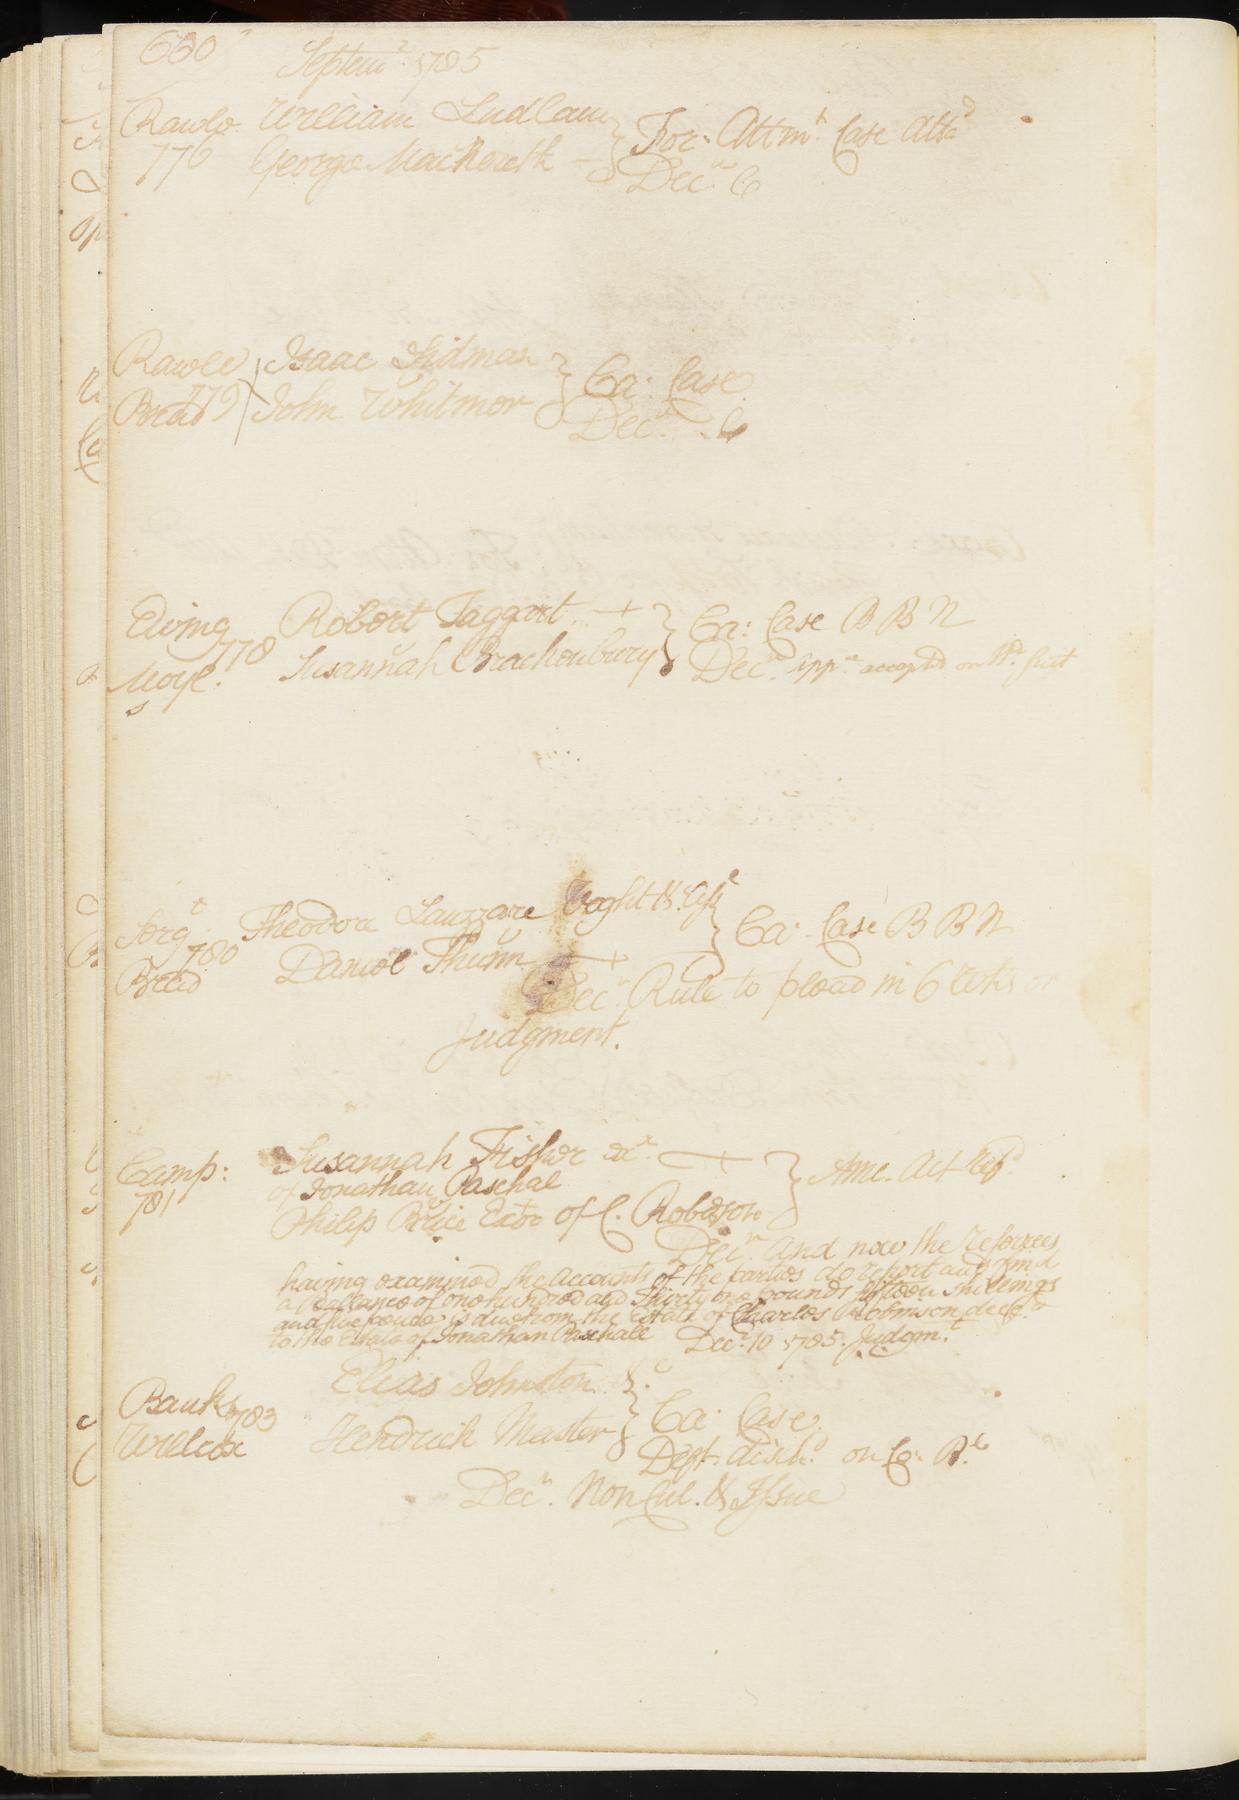 660
Septemr. 1785
Rawle William Ludlam
776 George Mackoreth
For: Attmt. Case Attad
Decn. C
Rawle Isaac Sidman
779
Bread John Whitmor
Ca: Case
Decn. C
Ewing Robert Taggart
778
Moyl. Susannah Brachonbury
s
Ca: Case B B N
Decn. appce accepted on Wt. suit
Sergt. Theodore Lauzzare Voght & Assee
780
Bread Daniel Thunn
Ca: Case B B N
Decn. Rule to plead in 6 Weks or
Judgment.
Camp: Susannah Fisher Exx.
781 of Jonathan Paschal
Philip Price Exor of C. Robeson
Ame. Act Refd.
Decn. And now the Referrees
having examined the accounts of the parties do report and find
a Ballance of one hundred and Thirty one pounds fifteen shillings
and five pence is due from the Estate of Charles Robinson decd.
to the Estate of Jonathan Paschall Decr. 10 1785. Judgmt.
Banks Elias Johnston
783
Willcox Hendrick Master
Ca: Case.
Deft. disch. on Co: Bl.
Decn. Non Cul. & Issue